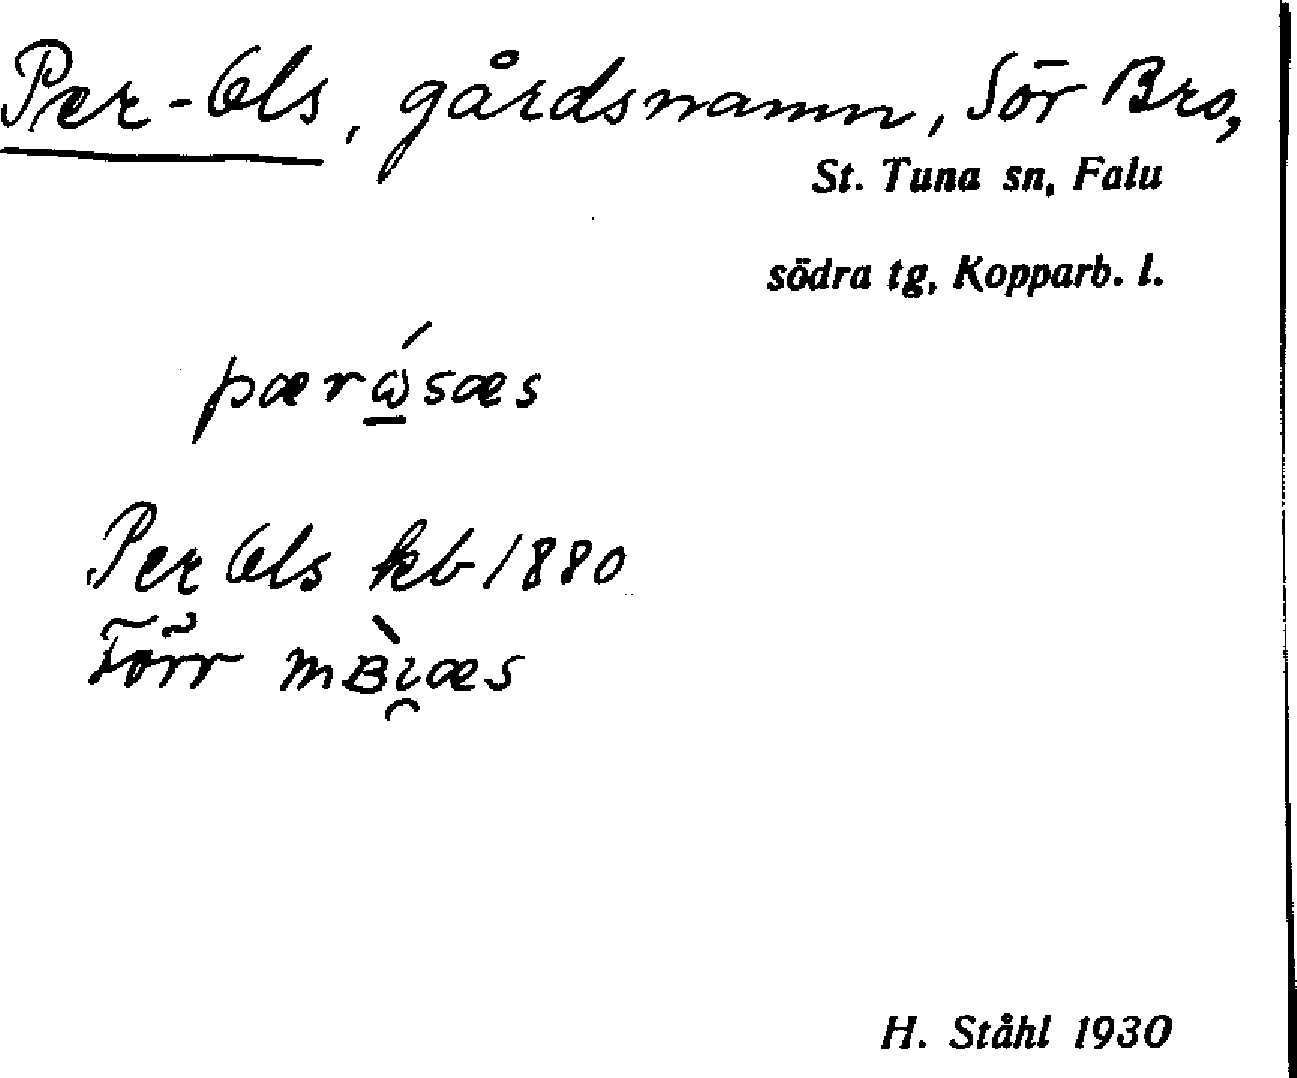 Per-Ols, gårdsnamn, Sör Bro,
St. Tuna sn, Falu
södra tg, Kopparb. l.
pærώ̱sæs
Per Ols kb 1880
Förr mʙì̯æs
H. Ståhl 1930